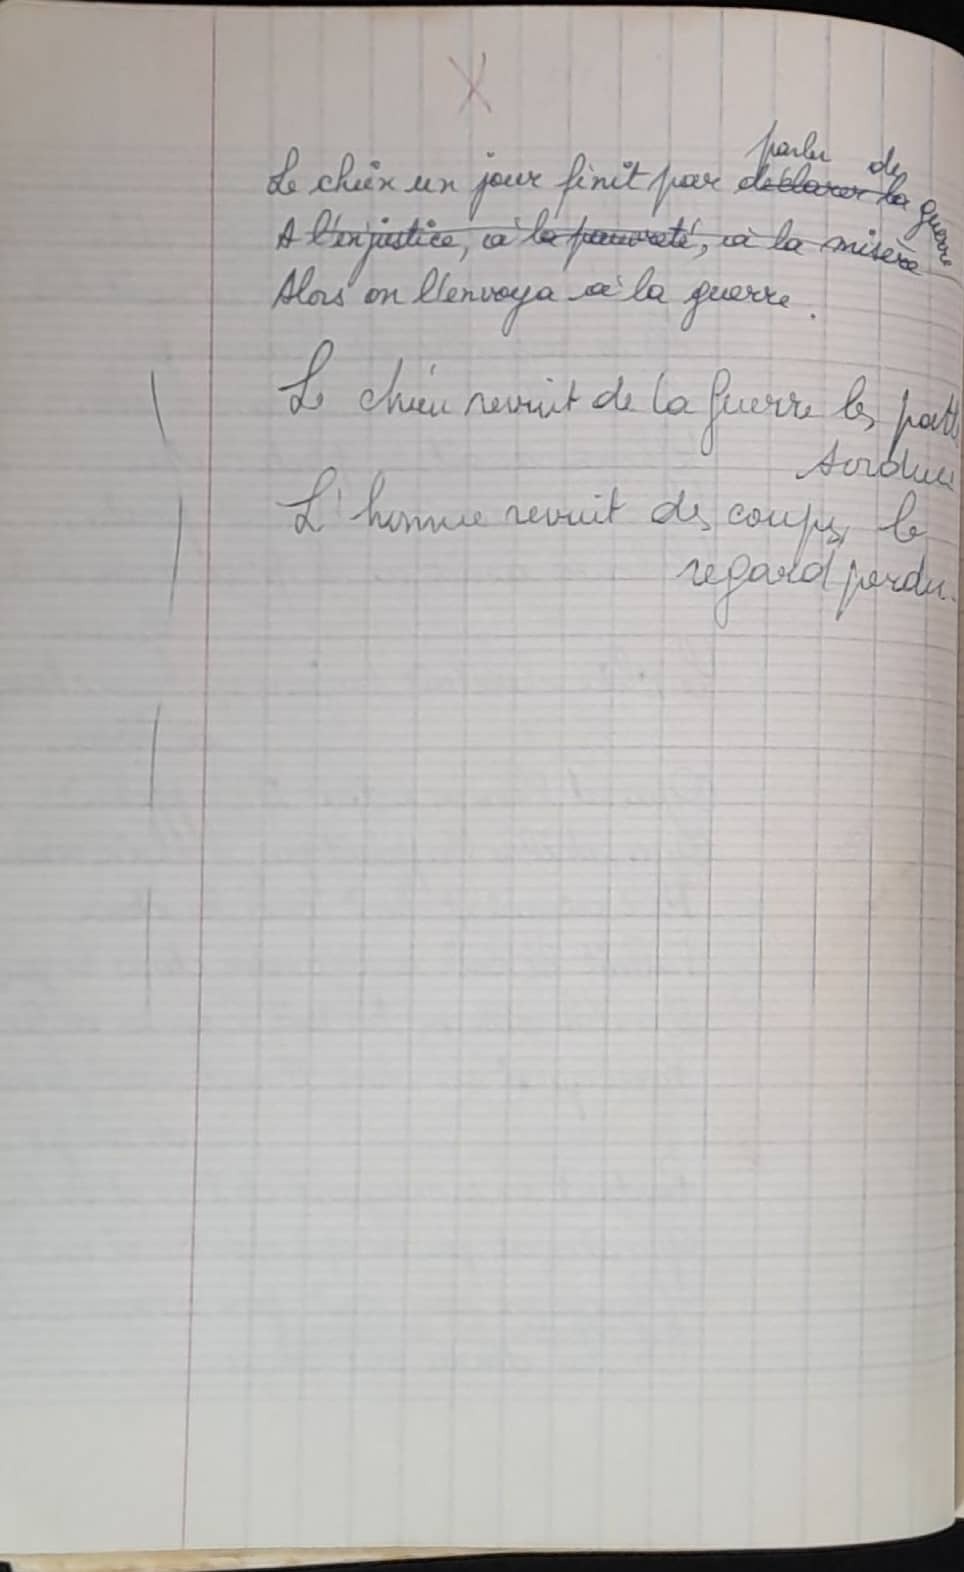 X
parler de
Le chien un jour finit par declarer la guerre
A l'enjustice, à la pauvreté, à la misère
Alors on l'envoya à la guerre.
Le chien revint de la guerre les patt
L'homme revint des coups, le
regard perdu.